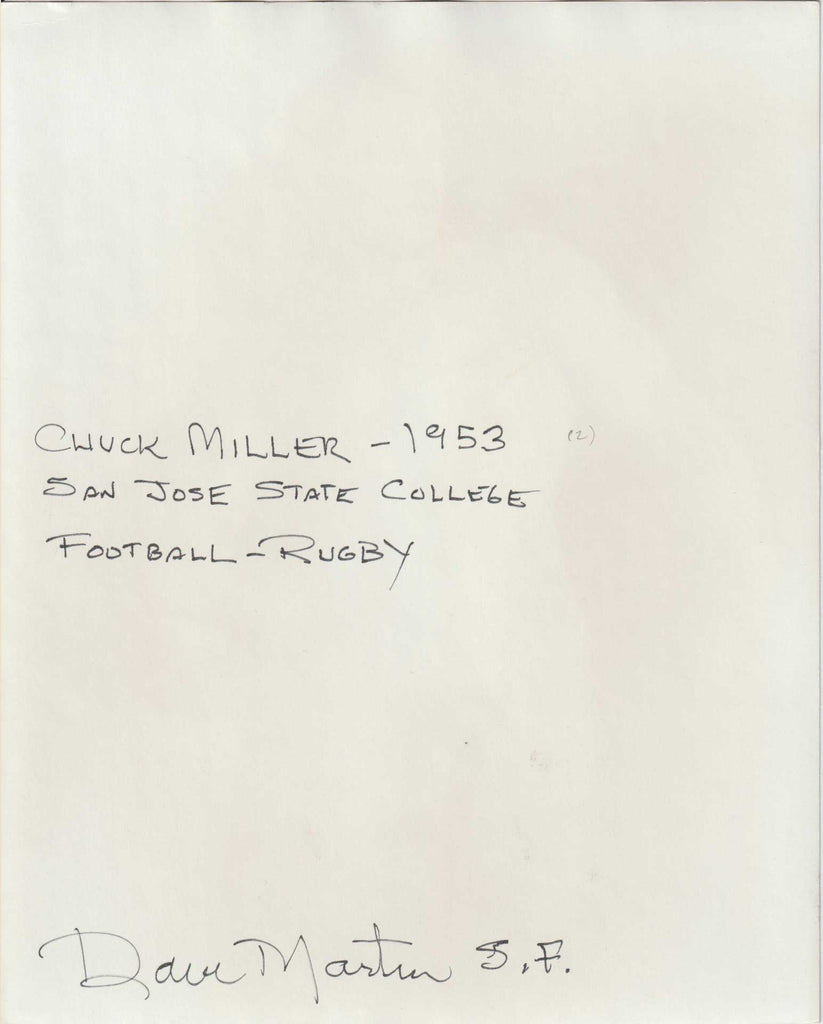 CHUCK MILLER - 1953 (2)
SAN JOSE STATE COLLEGE
FOOTBALL - RUGBY
Dave Martin S.F.